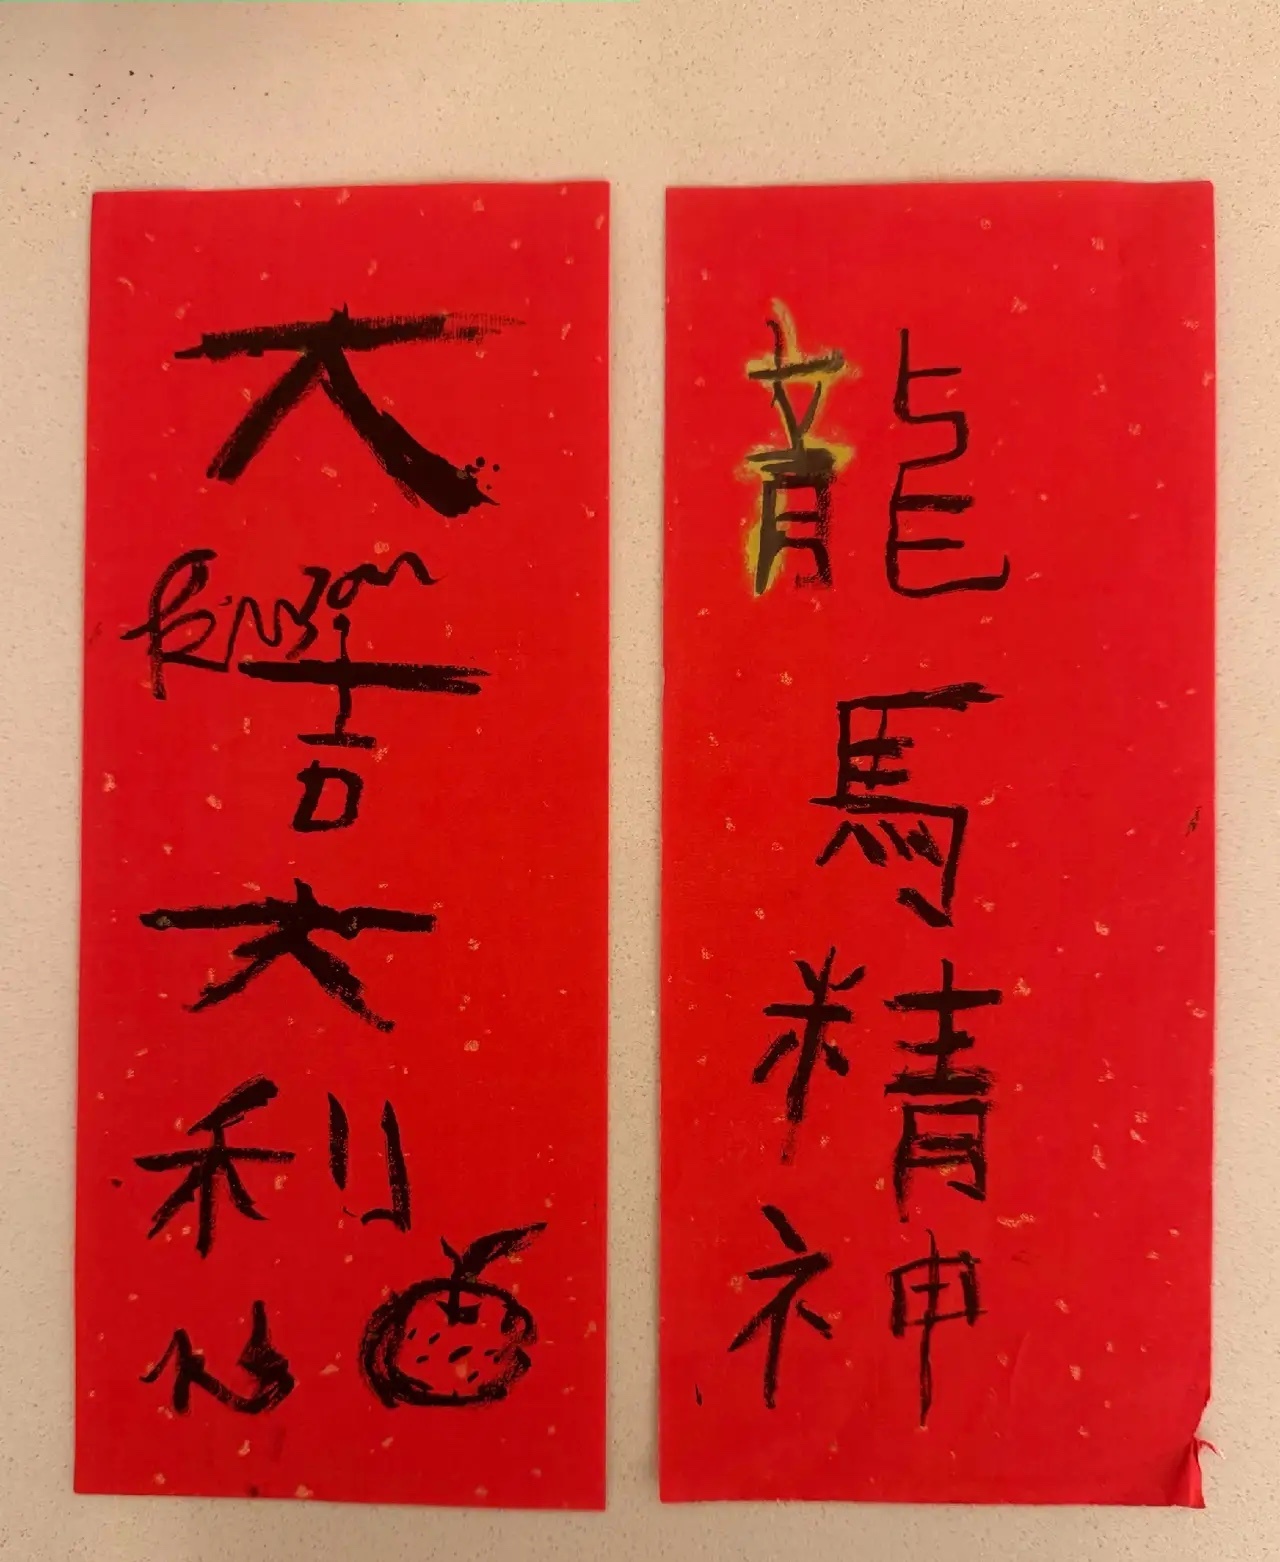 大吉大利
龍馬精神